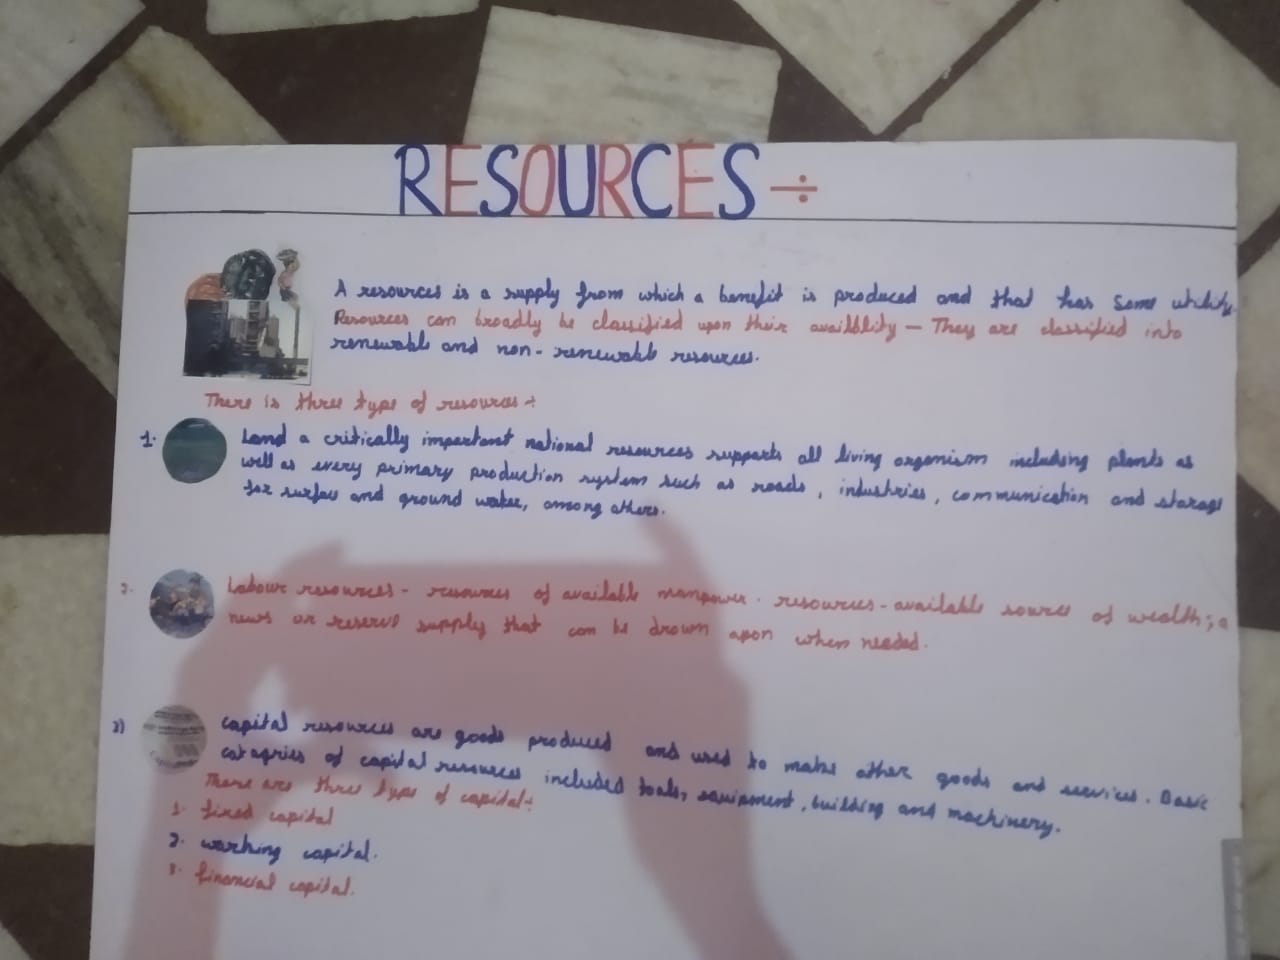 RESOURCES ÷
A resources is a supply from which a benefit is produced and that has some utility.
Resources can broadly be classified upon their availblity — They are classified into
renewable and non-renewable resources.
There is three type of resources÷
1. Land a critically important national resources supports all living organism including plants as
well as every primary production system such as roads, industries, communication and storage
for surface and ground water, among others.
2. Labour resources - resources of available manpower. resources - available source of wealth; a
news or reserve supply that can be drown upon when needed.
3) capital resources are goods produced and used to make other goods and services. Basic
catagries of capital resources included tools, equipment, building and machinery.
There are three type of capital÷
1. fixed capital
2. working capital.
3. financial capital.